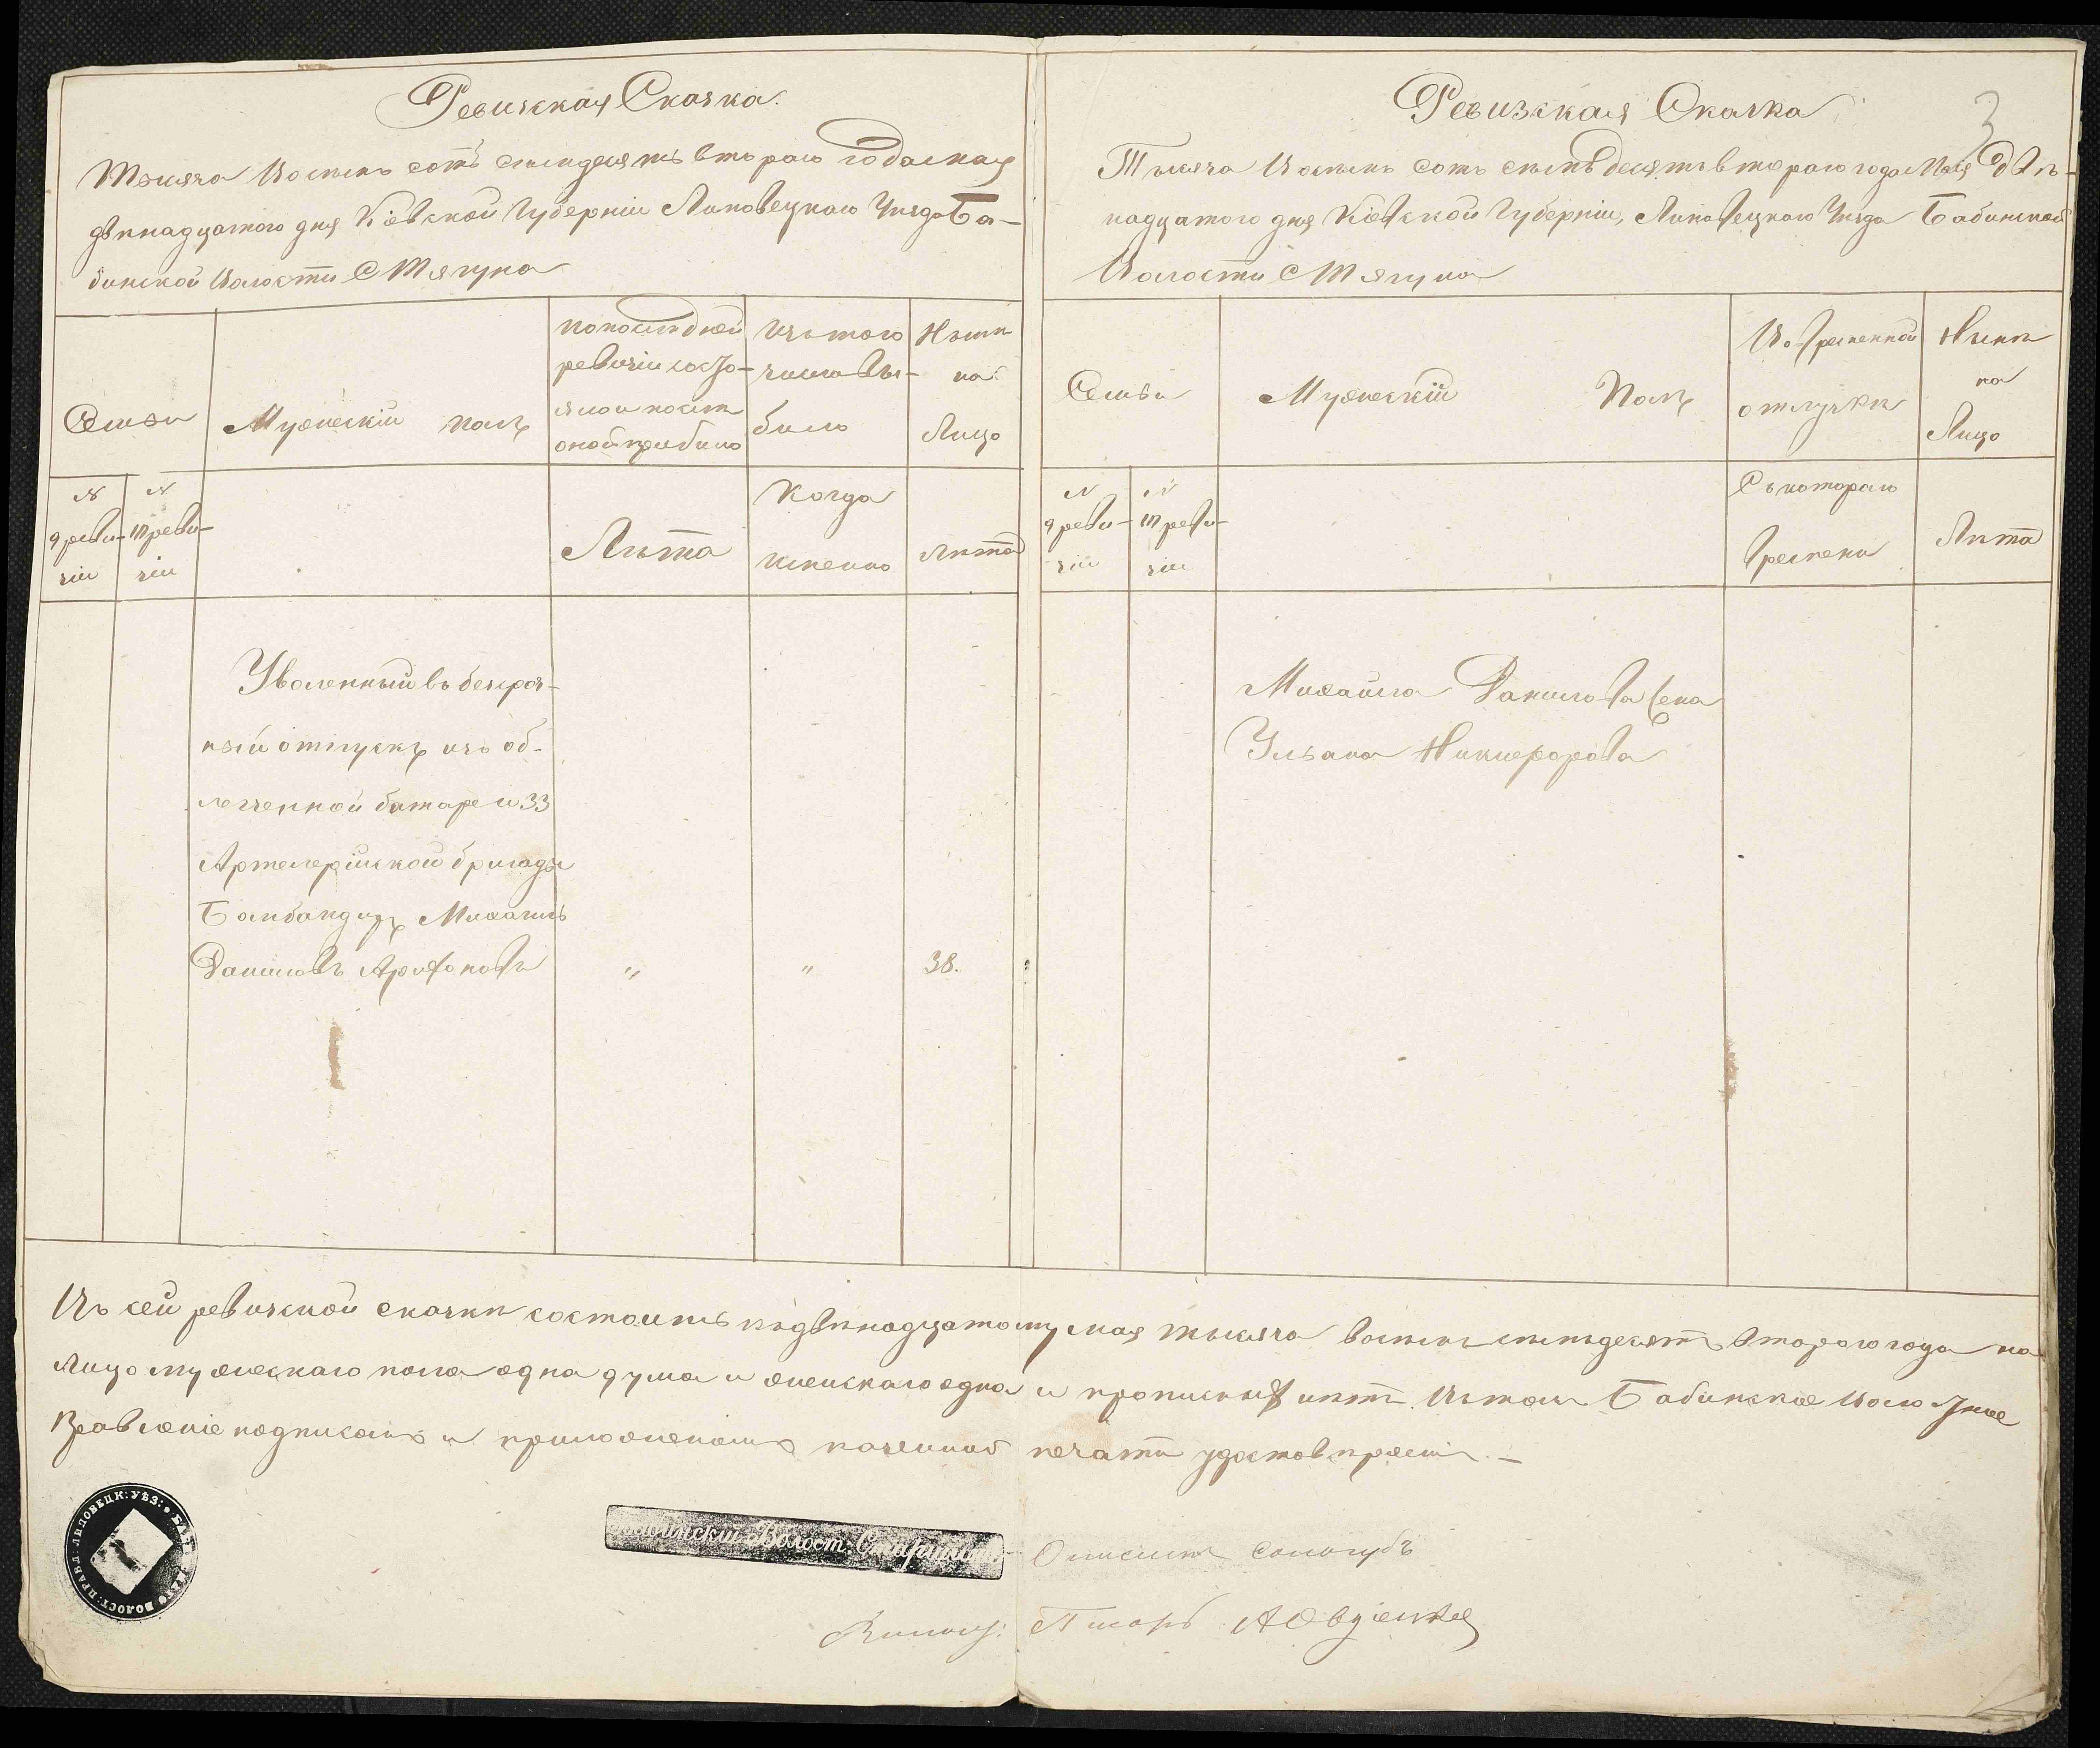 Ревизская Сказка.
Тысяча восемь сотъ семьдесятъ втораго года мая
двѣнадцатого дня Кіевской Губерніи Липовецкаго Уѣзда Ба-
бинской Волости С Тягуна
Семьи
Мужескій полъ
по послѣдней
ревизіи состо-
яло и послѣ
оной прибыло
Изъ того
числа вы-
было
Нынѣ
на
Лицо
№
9 реви-
зіи
№
10 реви-
зіи
Лѣта
Когда
именно
Лѣта
Уволенный въ безсроч-
ный отпускъ изъ об-
легченной батареи 33
Артелерійской бригады
Банбандиръ Михаилъ
Даниловъ
"
"
38.
Ревизская Сказка
3
Тысяча восемь сотъ семьдесятъ втораго года Мая двѣ-
надцатого дня Кіевской Губерніи, Липовецкаго Уѣзда Бабинской
Волости С Тягуна
Семьи
Мужескій Полъ
Во временной
отлучкѣ
Нынѣ
на
Лицо
№
9 реви-
зіи
№
10 реви-
зіи
Съ котораго
времени
Лѣта
Михайла Данилова жена
Ульана Никифорова
Въ сей ревизской сказкѣ состоитъ къ двѣнадцатому мая тысяча восемь семьдесятъ втораго года на
лицо мужескаго пола одна душа и женскаго одна и прописныхъ нѣтъ. Въ томъ Бабинское Волостное
Правленіе подписомъ и приложеніемъ казенной печати удостовѣряетъ. —
ЛИПОВЕЦК: УѢЗ:
ВОЛОСТ: ПРАВЛ:
Бабинскій Волост. Старшина
Сологубъ
Волост: Писарь